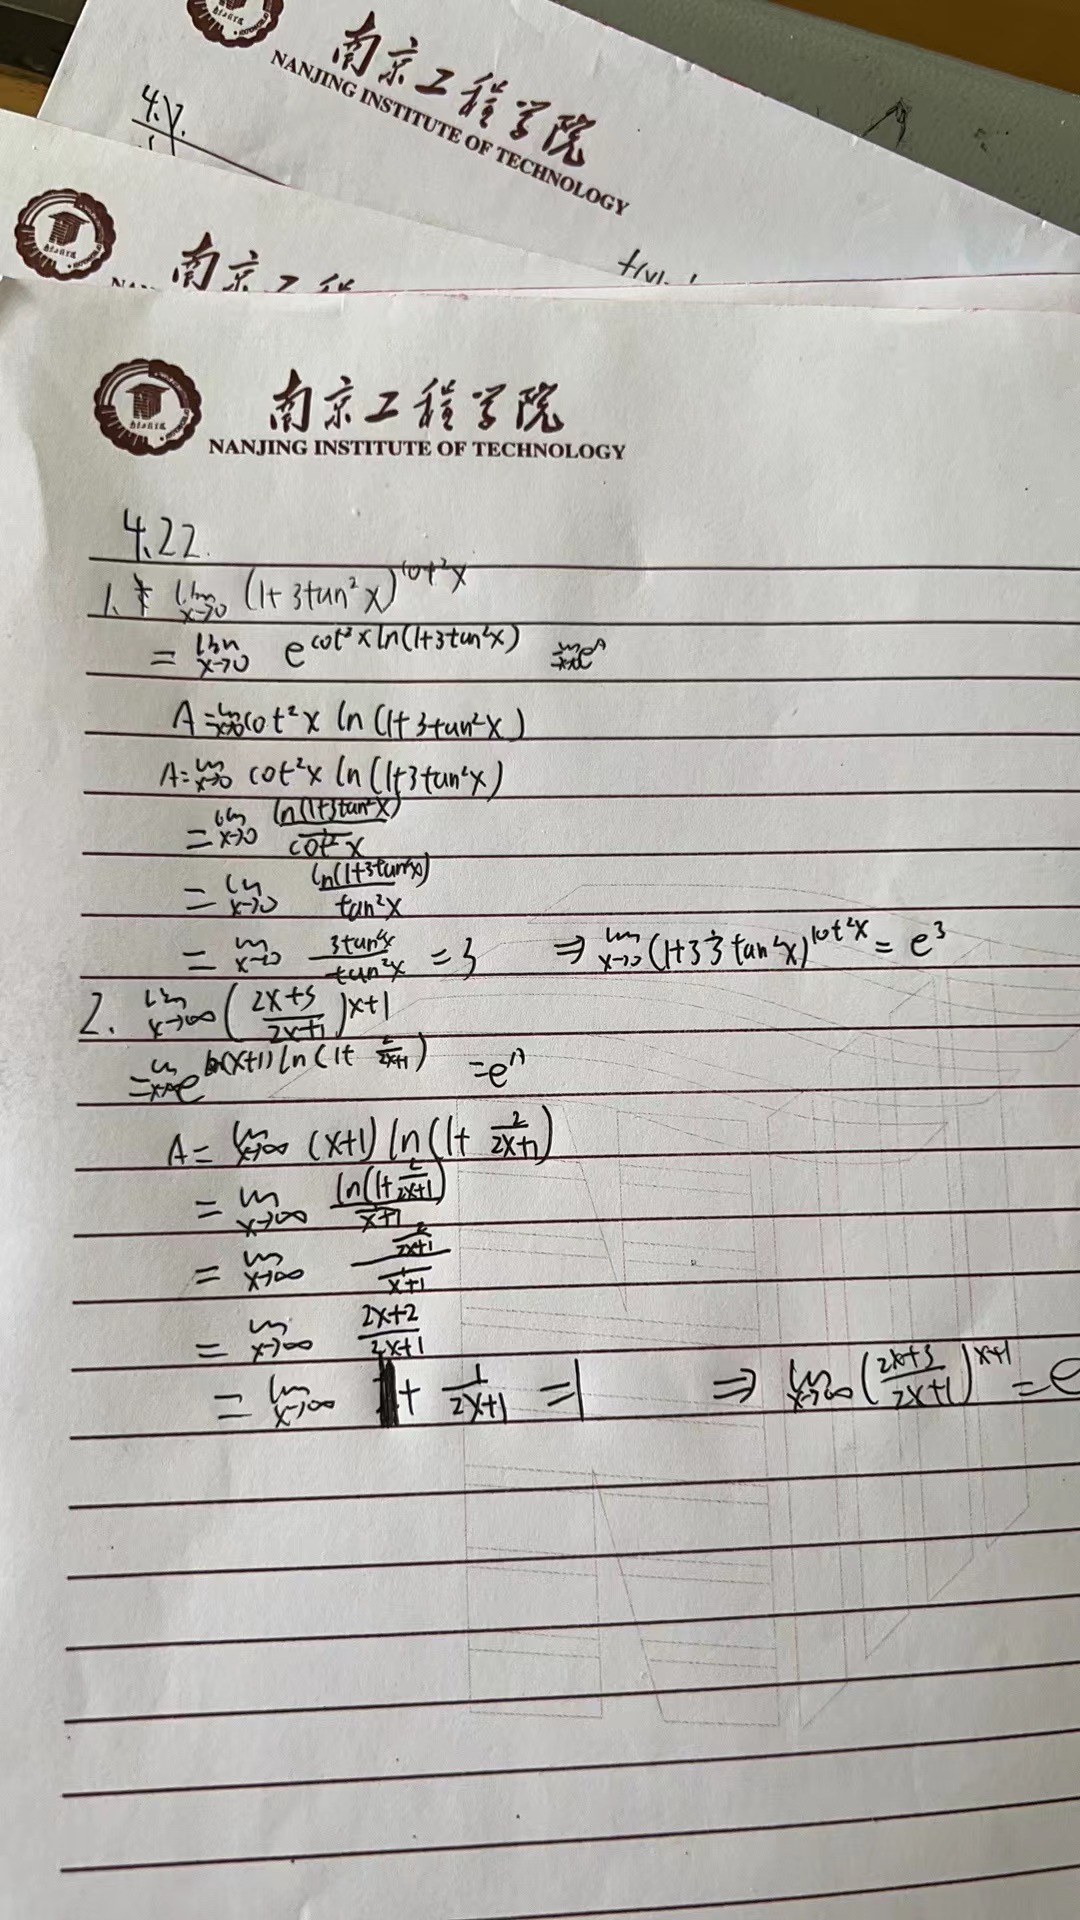 南京工程学院
NANJING INSTITUTE OF TECHNOLOGY
4.7.
南京工程
南京工程学院
NANJING INSTITUTE OF TECHNOLOGY
4.22.
1. lim x→0 (1+3tan²x)^cot²x
= lim x→0 e^cot²x ln(1+3tan²x) = e^A
A = lim x→0 cot²x ln(1+3tan²x)
A = lim x→0 cot²x ln(1+3tan²x)
= lim x→0 ln(1+3tan²x) / (1/cot²x)
= lim x→0 ln(1+3tan²x) / tan²x
= lim x→0 3tan²x / tan²x = 3 ⇒ lim x→0 (1+3 3tan²x)^cot²x = e³
2. lim x→∞ ((2x+3)/(2x+1))^x+1
= lim x→∞ e^(x+1) ln(1+ 2/(2x+1)) = e^A
A = lim x→∞ (x+1) ln(1+ 2/(2x+1))
= lim x→∞ ln(1+ 2/(2x+1)) / (1/(x+1))
= lim x→∞ (2/(2x+1)) / (1/(x+1))
= lim x→∞ (2x+2)/(2x+1)
= lim x→∞ 1 + 1/(2x+1) = 1 ⇒ lim x→∞ ((2x+3)/(2x+1))^x+1 = e